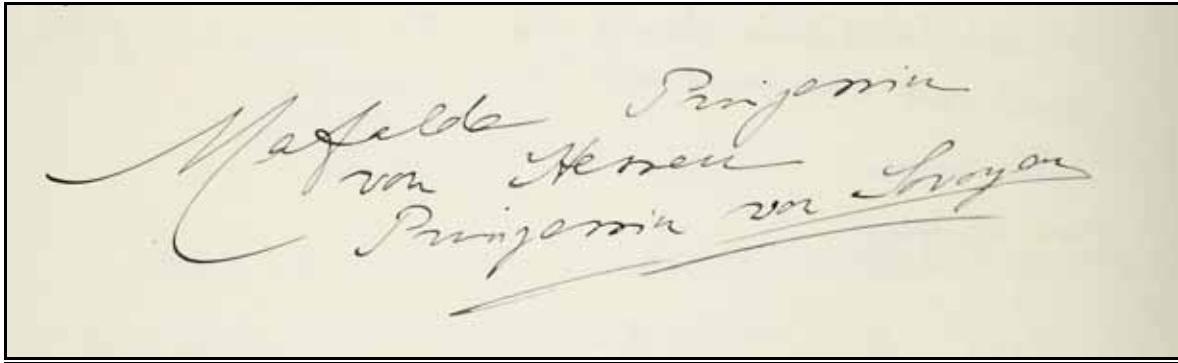 Mafalda Prinzessin
von Hessen
Prinzessin von Savoyen